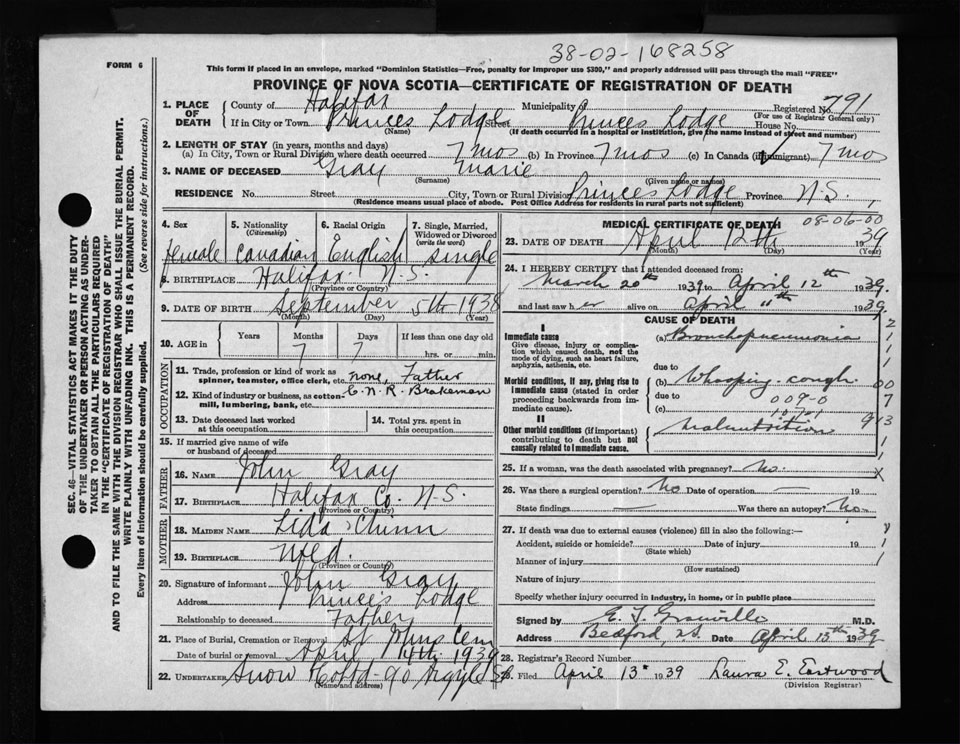 38-02-168258
FORM 6
This form if placed in an envelope, marked "Dominion Statistics—Free, penalty for improper use $300," and properly addressed will pass through the mail "FREE"
PROVINCE OF NOVA SCOTIA—CERTIFICATE OF REGISTRATION OF DEATH
1. PLACE OF DEATH
County of Halifax Municipality Registered No. 791
(For use of Registrar General only)
If in City or Town Princes Lodge Street Princes Lodge House No.
(Name) (If death occurred in a hospital or institution, give the name instead of street and number)
2. LENGTH OF STAY (in years, months and days)
(a) In City, Town or Rural Division where death occurred 7 mos (b) In Province 7 mos (c) In Canada (if immigrant) 7 mos
3. NAME OF DECEASED Gray Marie
(Surname) (Given name or names)
RESIDENCE No. Street City, Town or Rural Division Princes Lodge Province N.S.
(Residence means usual place of abode. Post Office Address for residents in rural parts not sufficient)
4. Sex female
5. Nationality (Citizenship) Canadian
6. Racial Origin English
7. Single, Married, Widowed or Divorced (write the word) Single
8. BIRTHPLACE Halifax N.S.
(Province or Country)
9. DATE OF BIRTH September 5th 1938
(Month) (Day) (Year)
10. AGE in Years Months 7 Days 7 If less than one day old
hrs. or min.
OCCUPATION
11. Trade, profession or kind of work as spinner, teamster, office clerk, etc. none, Father
12. Kind of industry or business, as cotton-mill, lumbering, bank, etc. C.N.R. Brakeman
13. Date deceased last worked at this occupation
14. Total yrs. spent in this occupation
15. If married give name of wife or husband of deceased
FATHER
16. NAME John Gray
17. BIRTHPLACE Halifax Co. N.S.
(Province or Country)
MOTHER
18. MAIDEN NAME Lida
19. BIRTHPLACE Nfld.
(Province or Country)
20. Signature of informant John Gray
Address Princes Lodge
Relationship to deceased Father
21. Place of Burial, Cremation or Removal St Johns Cem
Date of burial or removal April 14th 1939
22. UNDERTAKER Snow Co Ltd - 90 Argyle St
(Name and address)
MEDICAL CERTIFICATE OF DEATH
08-06-00
23. DATE OF DEATH April 12th 1939
(Month) (Day) (Year)
24. I HEREBY CERTIFY that I attended deceased from:
March 20th 1939 to April 12th 1939
and last saw her alive on April 11th 1939
CAUSE OF DEATH
I
Immediate cause
Give disease, injury or complication which caused death, not the mode of dying, such as heart failure, asphyxia, asthenia, etc.
(a) Bronchopneumonia
due to
Morbid conditions, if any, giving rise to immediate cause (stated in order proceeding backwards from immediate cause).
(b) Whooping-cough
due to 009-0
(c)
II
Other morbid conditions (if important) contributing to death but not causally related to immediate cause.
Malnutrition
25. If a woman, was the death associated with pregnancy? No.
26. Was there a surgical operation? No Date of operation — 19
State findings — Was there an autopsy? No.
27. If death was due to external causes (violence) fill in also the following:—
Accident, suicide or homicide? Date of injury 19
(State which)
Manner of injury
(How sustained)
Nature of injury
Specify whether injury occurred in industry, in home, or in public place
Signed by M.D.
Address Bedford, N.S. Date April 13th 1939
28. Registrar's Record Number
Filed April 13 1939 Laura E. Eastwood
(Division Registrar)
SEC. 46—VITAL STATISTICS ACT MAKES IT THE DUTY OF THE UNDERTAKER OR PERSON ACTING AS UNDERTAKER TO OBTAIN ALL THE PARTICULARS REQUIRED IN THE "CERTIFICATE OF REGISTRATION OF DEATH"
AND TO FILE THE SAME WITH THE DIVISION REGISTRAR WHO SHALL ISSUE THE BURIAL PERMIT.
WRITE PLAINLY WITH UNFADING INK. THIS IS A PERMANENT RECORD.
Every item of information should be carefully supplied. (See reverse side for instructions.)